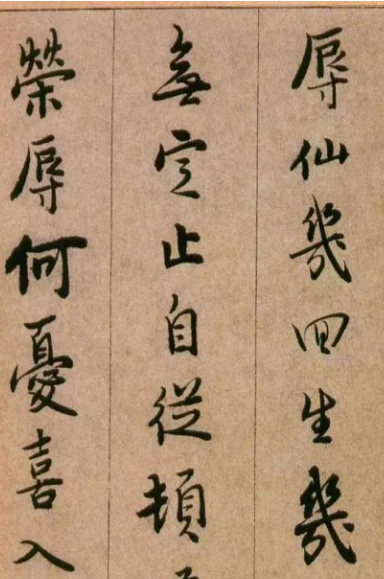 辱仙幾回生幾
無定止自從頓
榮辱何憂喜入